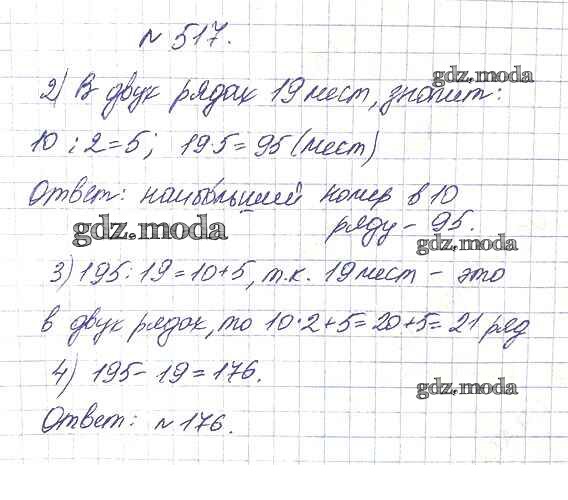 № 517.
gdz.moda
2) В двух рядах 19 мест, значит:
10 : 2 = 5; 19·5 = 95 (мест)
Ответ: наибольший номер в 10
ряду – 95.
gdz.moda
gdz.moda
3) 195 : 19 = 10 + 5, т.к. 19 мест – это
в двух рядах, то 10·2+5=20+5=21 ряд
4) 195 – 19 = 176.
gdz.moda
Ответ: № 176.